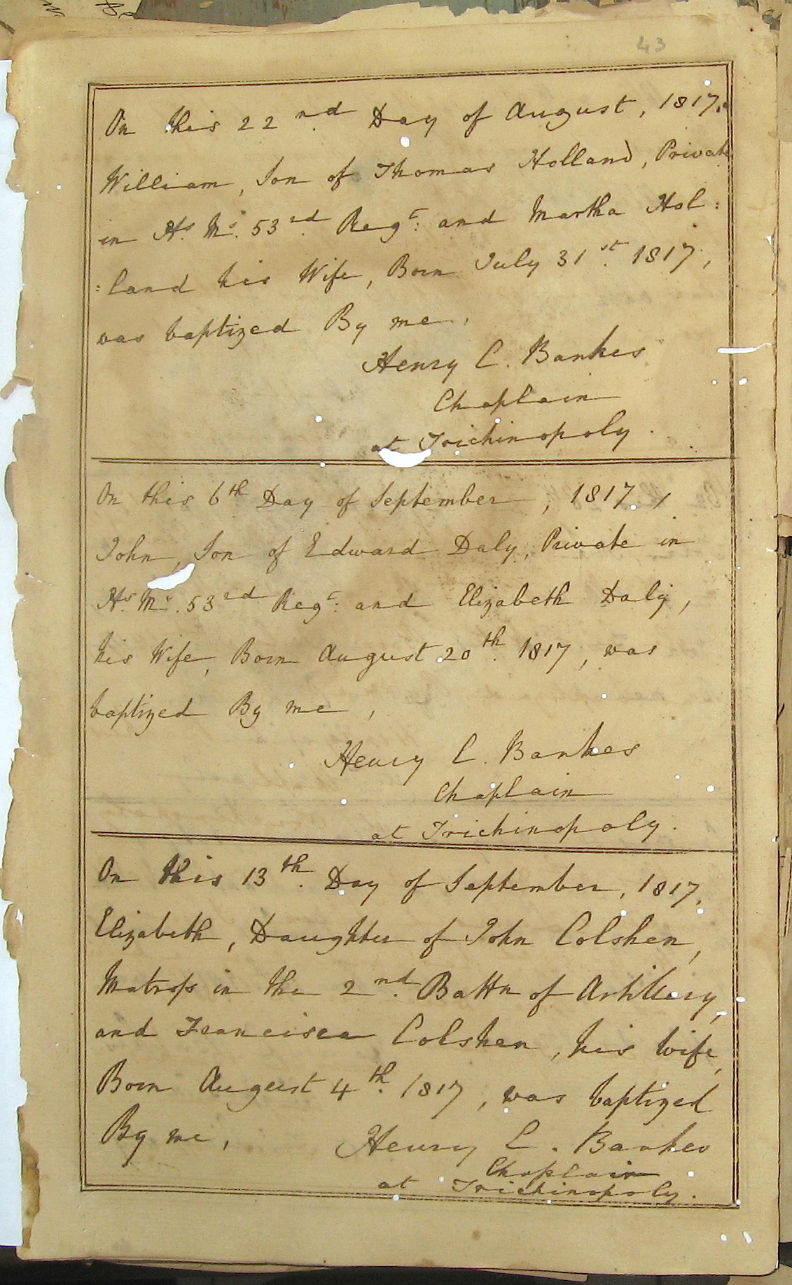 43
On this 22nd Day of August, 1817.
William, Son of Thomas Holland, Private
in Hs. Ms. 53rd Regt: and Martha Hol:
:land his Wife, Born July 31st. 1817,
was baptized By me,
Henry C. Bankes
Chaplain
at Trichinopoly.
On this 6th Day of September, 1817,
John, Son of Edward Daly, Private in
Hs. Ms. 53rd Regt: and Elizabeth Daly,
his Wife, Born August 20th. 1817, was
baptized By me,
Henry C. Bankes
Chaplain
at Trichinopoly.
On this 13th. Day of September, 1817,
Elizabeth, Daughter of John Colshen,
Matross in the 2nd. Battn of Artillery,
and Francisca Colshen, his wife,
Born August 4th. 1817, was baptized
By me,
Henry C. Bankes
Chaplain
at Trichinopoly.